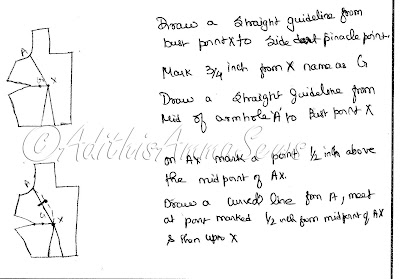 Draw a straight guideline from
bust point X to Side dart pinacle point.
Mark 3/4 inch from X name as G
Draw a straight guideline from
Mid of armhole 'A' to Bust point X
on Ax mark a point 1/2 inch above
the midpoint of Ax.
Draw a curved line from A, meet
at point marked 1/2 inch from midpoint of AX
& then upto X
A
G
X
A
G
X
©AdithisAmmaSews